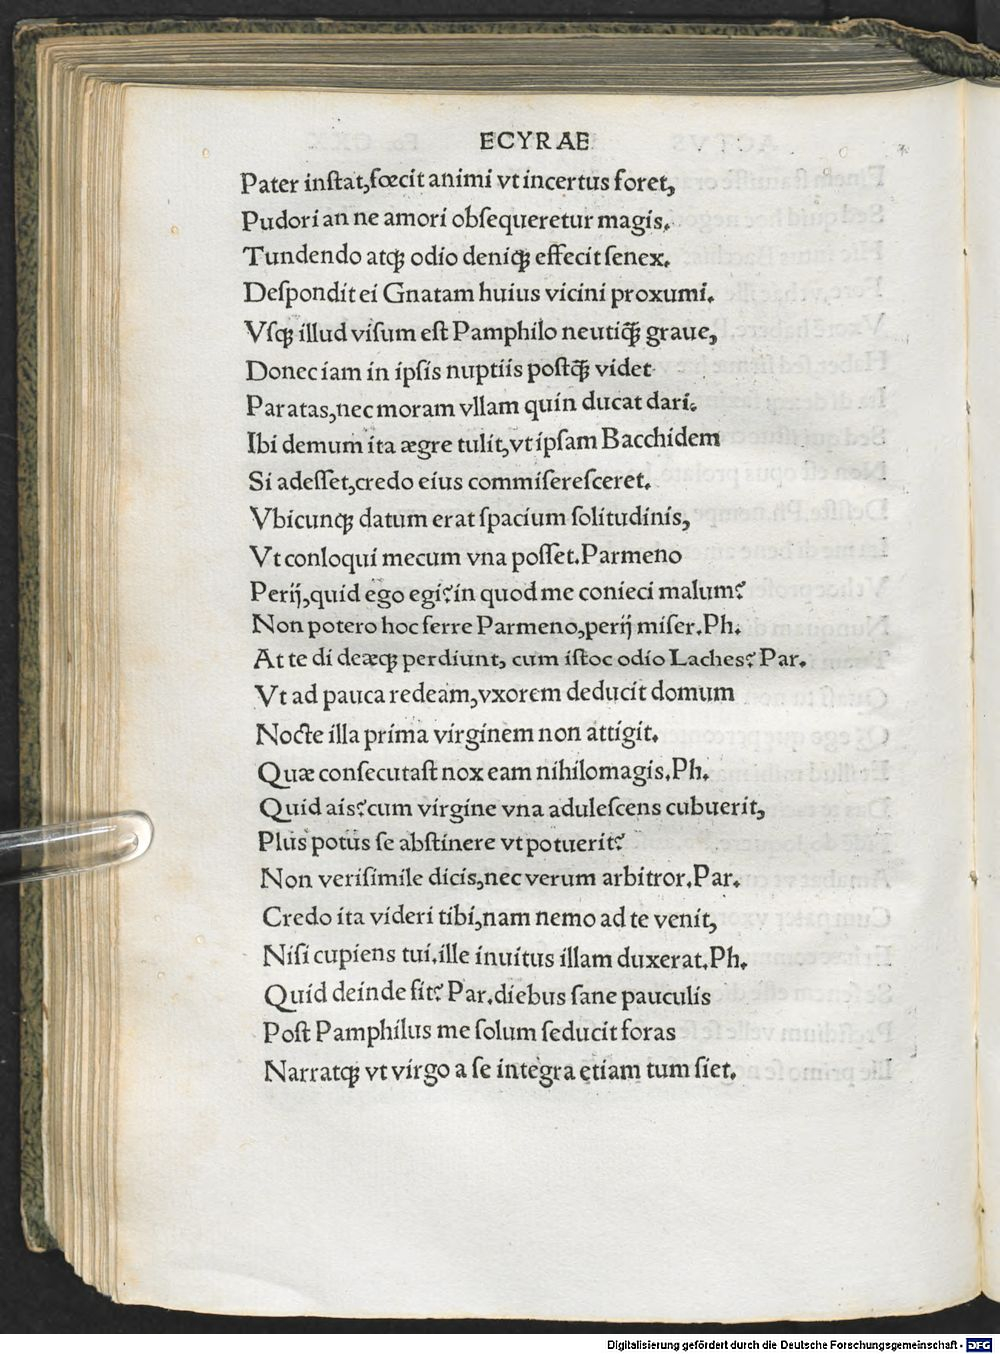 ECYRAE
Pater inſtat,fœcit animi vt incertus foret,
Pudori an ne amori obſequeretur magis.
Tundendo atꝙ odio deniꝙ effecit ſenex.
Deſpondit ei Gnatam huius vicini proxumi.
Vſꝙ illud viſum eſt Pamphilo neutiꝙ̃ graue,
Donec iam in ipſis nuptiis poſtꝙ̃ videt
Paratas,nec moram vllam quin ducat dari.
Ibi demum ita ægre tulit,vt ipſam Bacchidem
Si adeſſet,credo eius commiſereſceret.
Vbicunꝙ datum erat ſpacium ſolitudinis,
Vt conloqui mecum vna poſſet.Parmeno
Perij,quid ego egi?in quod me conieci malum?
Non potero hoc ferre Parmeno,perij miſer.Ph.
At te di deæꝙ perdiunt, cum iſtoc odio Laches? Par.
Vt ad pauca redeam,vxorem deducit domum
Nocte illa prima virginem non attigit.
Quæ conſecutaſt nox eam nihilomagis.Ph.
Quid ais?cum virgine vna aduleſcens cubuerit,
Plus potus ſe abſtinere vt potuerit?
Non veriſimile dicis,nec verum arbitror.Par.
Credo ita videri tibi,nam nemo ad te venit,
Niſi cupiens tui.ille inuitus illam duxerat.Ph.
Quid deinde fit? Par.diebus ſane pauculis
Poſt Pamphilus me ſolum ſeducit foras
Narratꝙ vt virgo a ſe integra etiam tum ſiet.
Digitalisierung gefördert durch die Deutsche Forschungsgemeinschaft - DFG